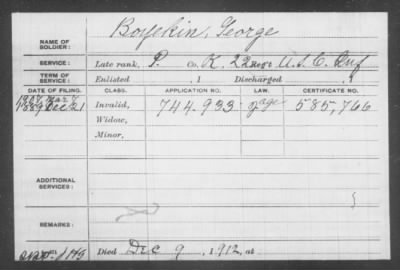 NAME OF SOLDIER: Boykin, George
SERVICE: Late rank, P. Co. K. 22 Reg't U.S.C. Inf
TERM OF SERVICE: Enlisted , 1 Discharged , 1
DATE OF FILING. CLASS. APPLICATION NO. LAW. CERTIFICATE NO.
1889 Dec 21 Invalid, 744.933 585,766
Widow,
Minor,
ADDITIONAL SERVICES:
REMARKS:
Died Dec 9, 1912, at